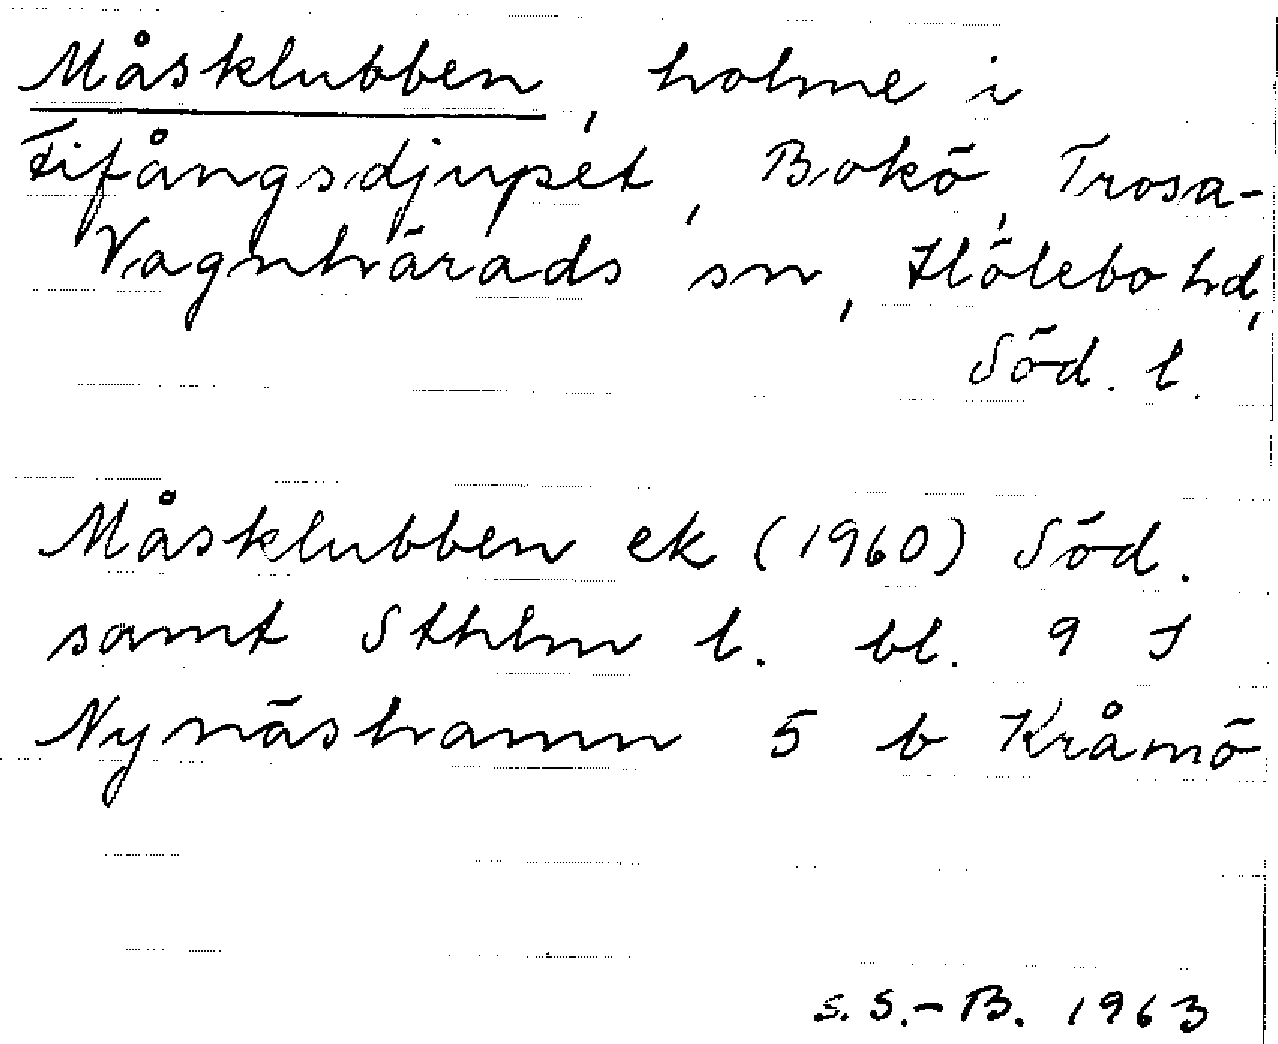 Måsklubben, holme i
Fifångsdjupet, Bokö, Trosa-
Vagnhärads sn, Hölebo hd,
Söd. l.
Måsklubben ek (1960) Söd.
samt Sthlm l. bl. 9 I
Nynäshamn 5 b Kråmö
S. S.-B. 1963